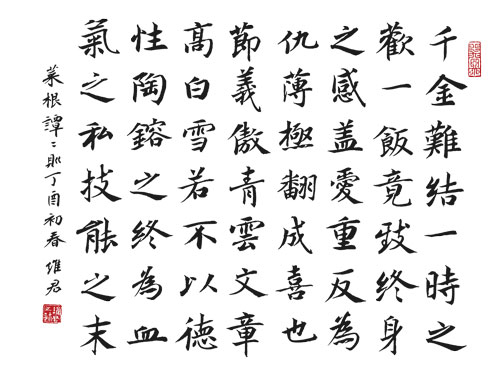 千金難結一時之
歡一飯竟致終身
之感盖愛重反為
仇薄極翻成喜也
節義傲青雲文章
高白雪若不以德
性陶鎔之終為血
氣之私技能之末
菜根譚二則丁酉初春 維君